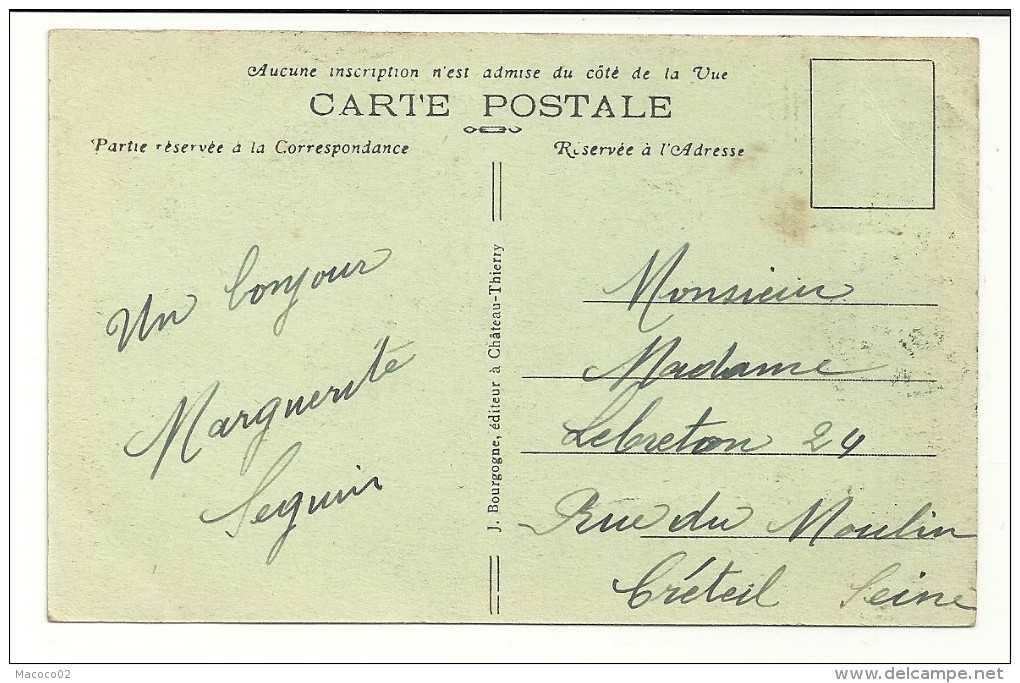 Aucune inscription n'est admise du côté de la Vue
CARTE POSTALE
Partie réservée à la Correspondance
Réservée à l'Adresse
Un bonjour
Marguerite
Seguin
J. Bourgogne, éditeur à Château-Thierry
Monsieur
Madame
Lebreton 24
Rue du Moulin
Créteil Seine
Macoco02
www.delcampe.net